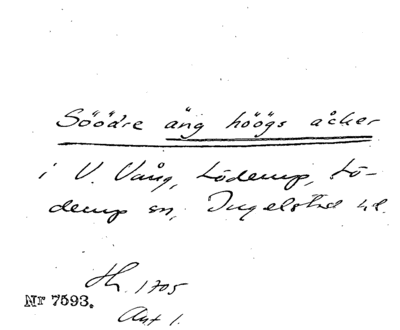 Söödre äng höögs åcker
i V. Vång, Löderup, Lö-
derup sn, Ingelstad hd.
Hh. 1705
Nr 7593.
Akt 1.